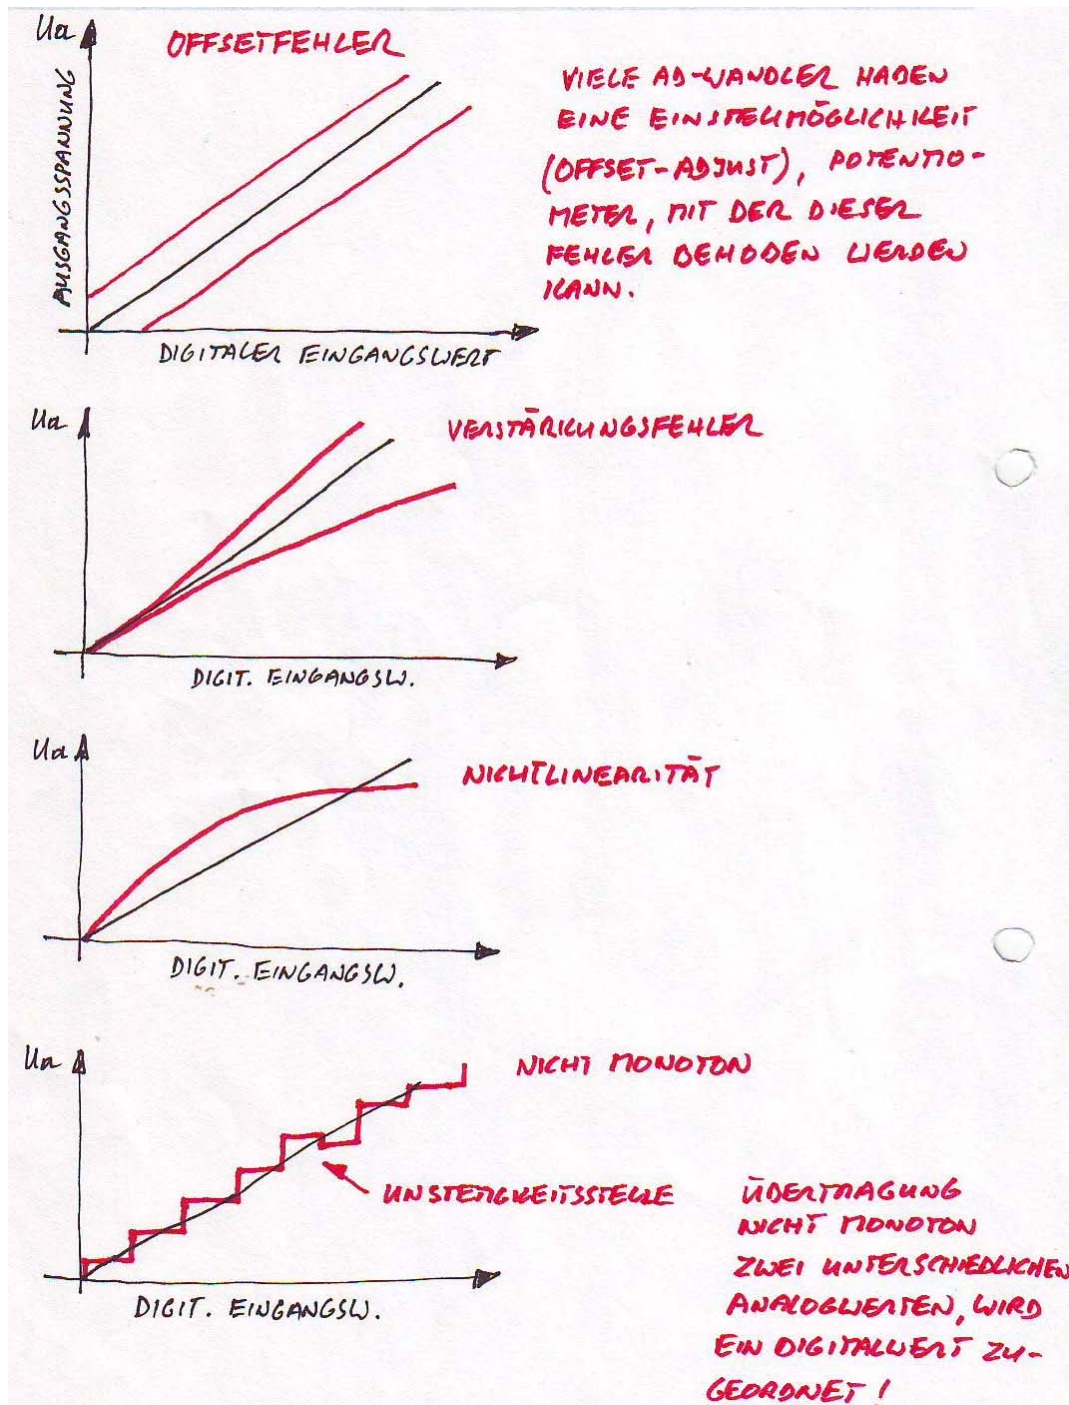 Ua
OFFSETFEHLER
AUSGANGSSPANNUNG
DIGITALER EINGANGSWERT
VIELE AD-WANDLER HABEN
EINE EINSTELLMÖGLICHKEIT
(OFFSET-ADJUST), POTENTIO-
METER, MIT DER DIESER
FEHLER BEHOBEN WERDEN
KANN.
Ua
VERSTÄRKUNGSFEHLER
DIGIT. EINGANGSW.
Ua
NICHTLINEARITÄT
DIGIT. EINGANGSW.
Ua
NICHT MONOTON
UNSTETIGKEITSSTELLE
DIGIT. EINGANGSW.
ÜBERTRAGUNG
NICHT MONOTON
ZWEI UNTERSCHIEDLICHEN
ANALOGWERTEN, WIRD
EIN DIGITALWERT ZU-
GEORDNET!